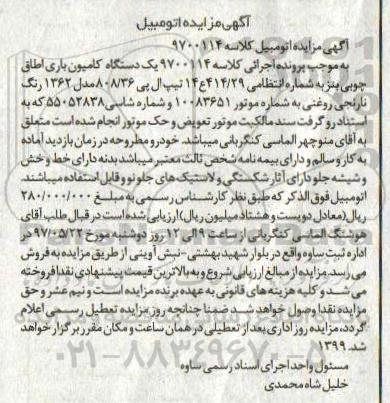 آگهی مزایده اتومبیل
آگهی مزایده اتومبیل کلاسه ۹۷۰۰۱۱۴
به موجب پرونده اجرائی کلاسه ۹۷۰۰۱۱۴ یک دستگاه کامیون باری اطاق
چوبی بنز به شماره انتظامی ۴۱۴/۲۹ع۱۴ تیپ ال پی ۸۰۸/۳۶ مدل ۱۳۶۲ رنگ
نارنجی روغنی به شماره موتور ۱۰۰۸۳۶۵۱ و شماره شاسی ۵۵۰۵۲۸۳۸ که به
استناد رو گرفت سند مالکیت موتور تعویض و حک موتور انجام شده است متعلق
به آقای منوچهر الماسی کنگربانی میباشد. خودرو مطروحه در زمان بازدید آماده
به کار و سالم و دارای بیمه نامه شخص ثالث معتبر میباشد بدنه دارای خط و خش
و شیشه جلو دارای آثار شکستگی و لاستیک های جلو نو و قابل استفاده میباشند.
اتومبیل فوق الذکر که طبق نظر کارشناس رسمی به مبلغ ۲۸۰/۰۰۰/۰۰۰
ریال (معادل دویست و هشتاد میلیون ریال) ارزیابی شده است در قبال طلب آقای
هوشنگ الماسی کنگربانی از ساعت ۹ الی ۱۲ روز دوشنبه مورخ ۹۷/۰۵/۲۲ در
اداره ثبت ساوه واقع در بلوار شهید بهشتی - نبش آوینی از طریق مزایده به فروش
می رسد. مزایده از مبالغ ارزیابی شروع و به بالاترین قیمت پیشنهادی نقدا فروخته
می شد و کلیه هزینه های قانونی به عهده برنده مزایده است و نیم عشر و حق
مزایده نقدا وصول خواهد شد ضمنا چنانچه روز مزایده تعطیل رسمی اعلام
گردد، مزایده روز اداری بعد از تعطیلی در همان ساعت و مکان مقرر برگزار خواهد
شد. ۱۳۹۹
مسئول واحد اجرای اسناد رسمی ساوه
خلیل شاه محمدی
۰۲۱-۸۸۳۴۹۶۷۰-۵